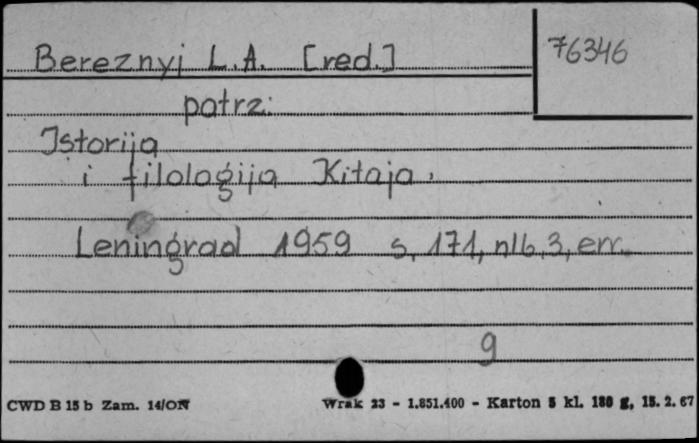 Bereznyj L.A. [red.]
76346
patrz:
Istorija
i filologija Kitaja.
Leningrad 1959 s. 171, nlb, 3, err.
9
CWD B 15 b Zam. 14/ON Wrak 23 - 1.851.400 - Karton 5 kl. 180 g, 15. 2. 67